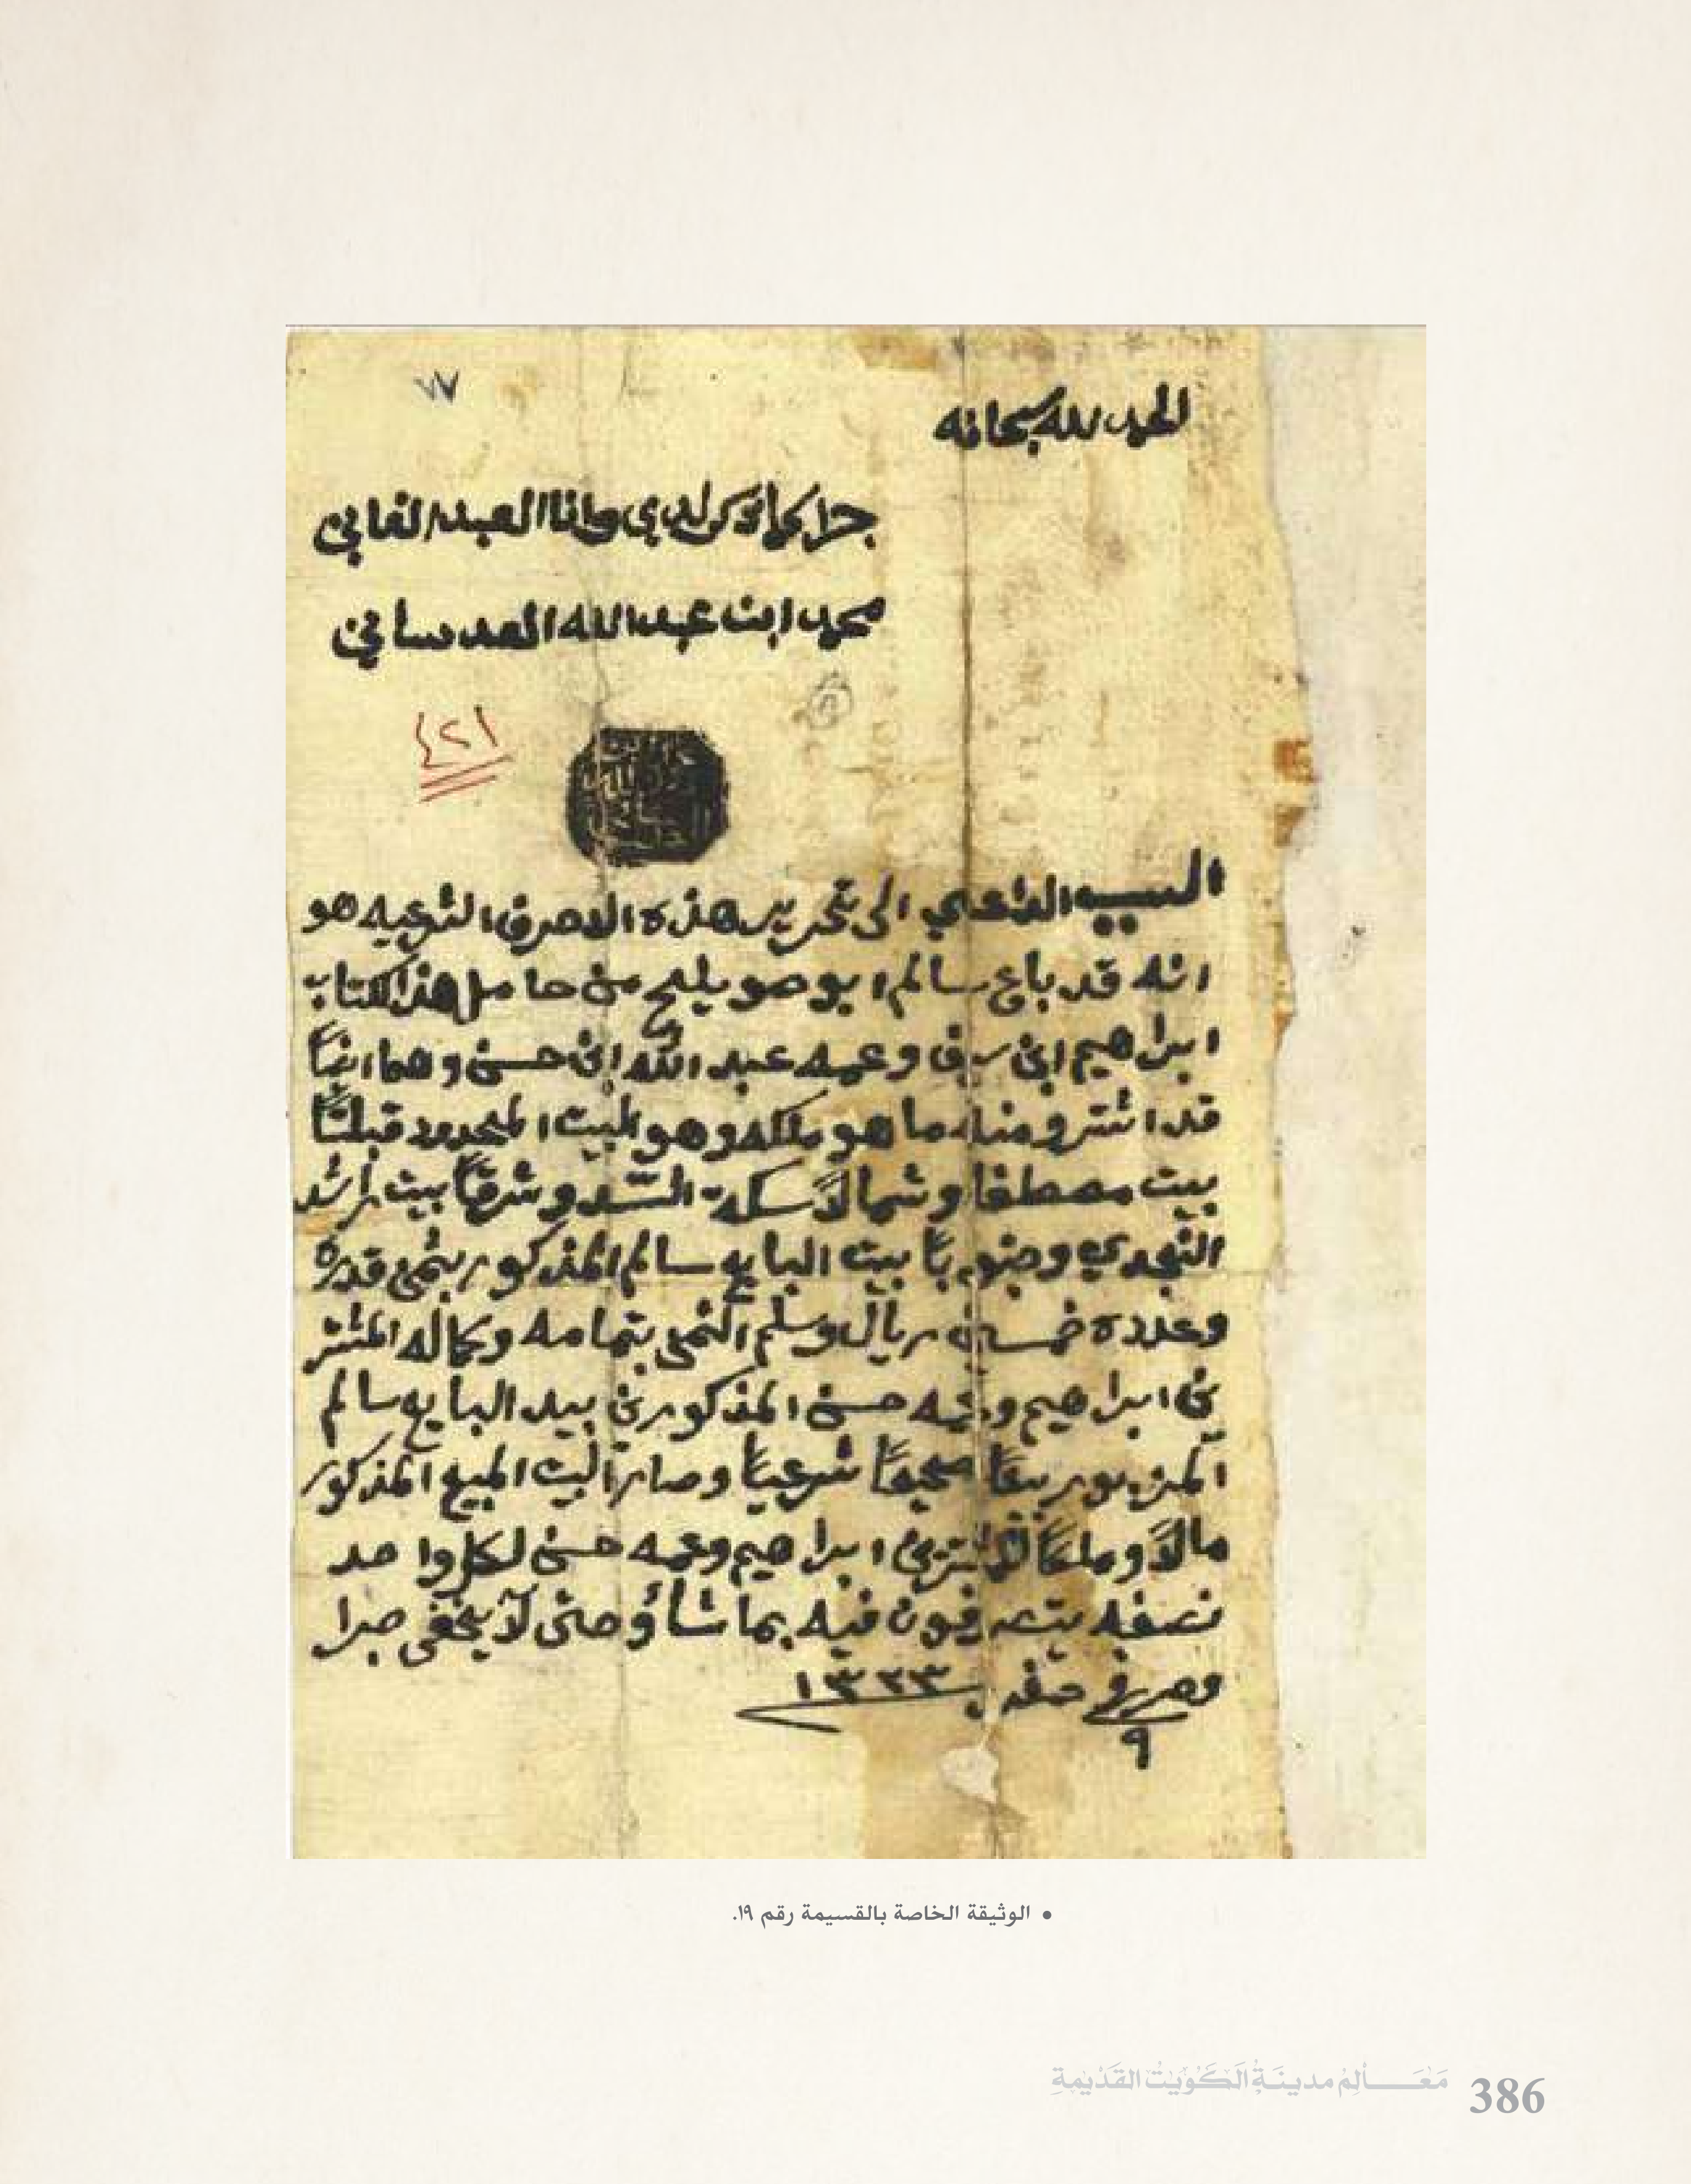 ٧٧
الحمد لله سبحانه
جرا كما ذكر لدي وانا العبد الفاني
محمد ابن عبد الله العدساني
٤٢١
السبب الداعي الى تحرير هذه الاحرف الشرعيه هو
انه قد باع سالم ابو صويلح من حامل هذا الكتاب
ابراهيم ابن وعمه عبد الله ابن حسن وهما ايضاً
قد اشترو منه ما هو ملكه وهو البيت المحدود قبلتاً
بيت مصطفا وشمالاً سكة السد وشرقاً بيت راشد
النجدي وجنوباً بيت البايع سالم المذكور بثمن قدره
وعدده خمسين ريال وسلم الثمن بتمامه وكماله المشتر
ين ابراهيم وعمه حسن المذكورين بيد البايع سالم
المزبور بيعاً صحيحاً شرعياً وصار البيت المبيع المذكور
مالاً وملكاً للمشترين ابراهيم وعمه حسن لكل واحد
نصفه يتصرفون فيه بما شاؤ حتى لا يخفى جرا
وحرر في صفر ١٣٢٣
٩
• الوثيقة الخاصة بالقسيمة رقم ١٩.
مَعَـالِمُ مدينَةِ الكُوَيْتِ القَدْيمةِ 386